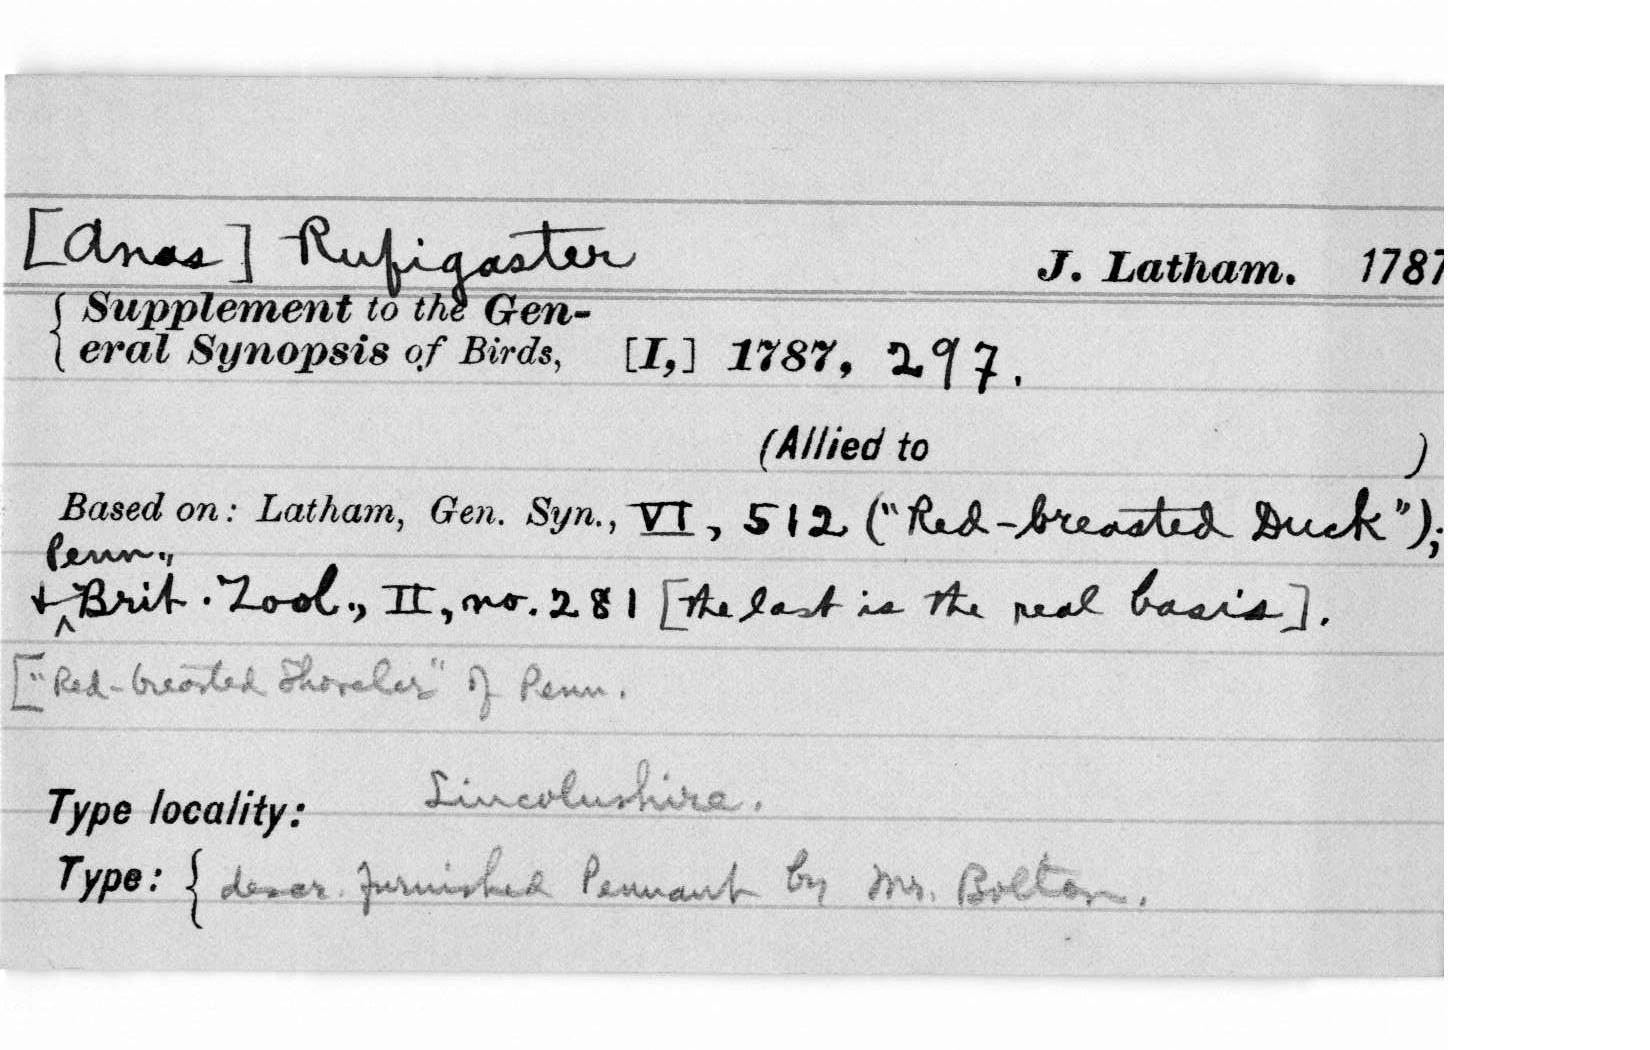 [Anas] Rufigaster J. Latham. 1787
{ Supplement to the Gen-
eral Synopsis of Birds, [I,] 1787, 297.
(Allied to )
Based on: Latham, Gen. Syn., VI, 512 ("Red-breasted Duck");
Penn.,
+ ^ Brit. Zool., II, no. 281 [the last is the real basis].
["Red-breasted Shoveler" of Penn.
Type locality: Lincolnshire.
Type: { descr. furnished Pennant by Mr. Bolton.